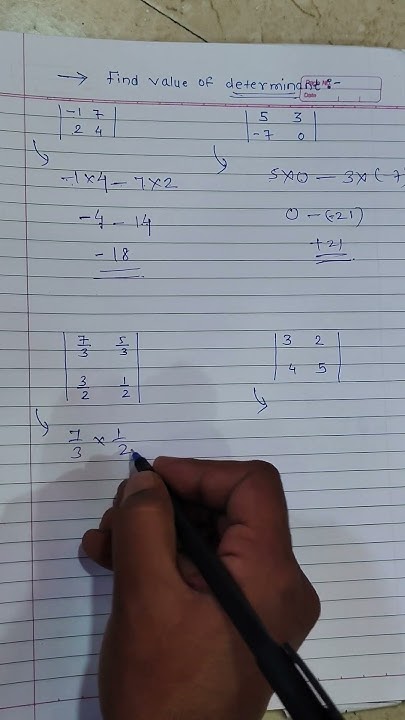 → Find value of determinant :-
Page No.
Date
|-1 7|
|2 4|
-1×4 - 7×2
-4 - 14
-18
|5 3|
|-7 0|
5×0 - 3×(-7)
0 - (-21)
+21
|7/3 5/3|
|3/2 1/2|
7/3 × 1/2
|3 2|
|4 5|